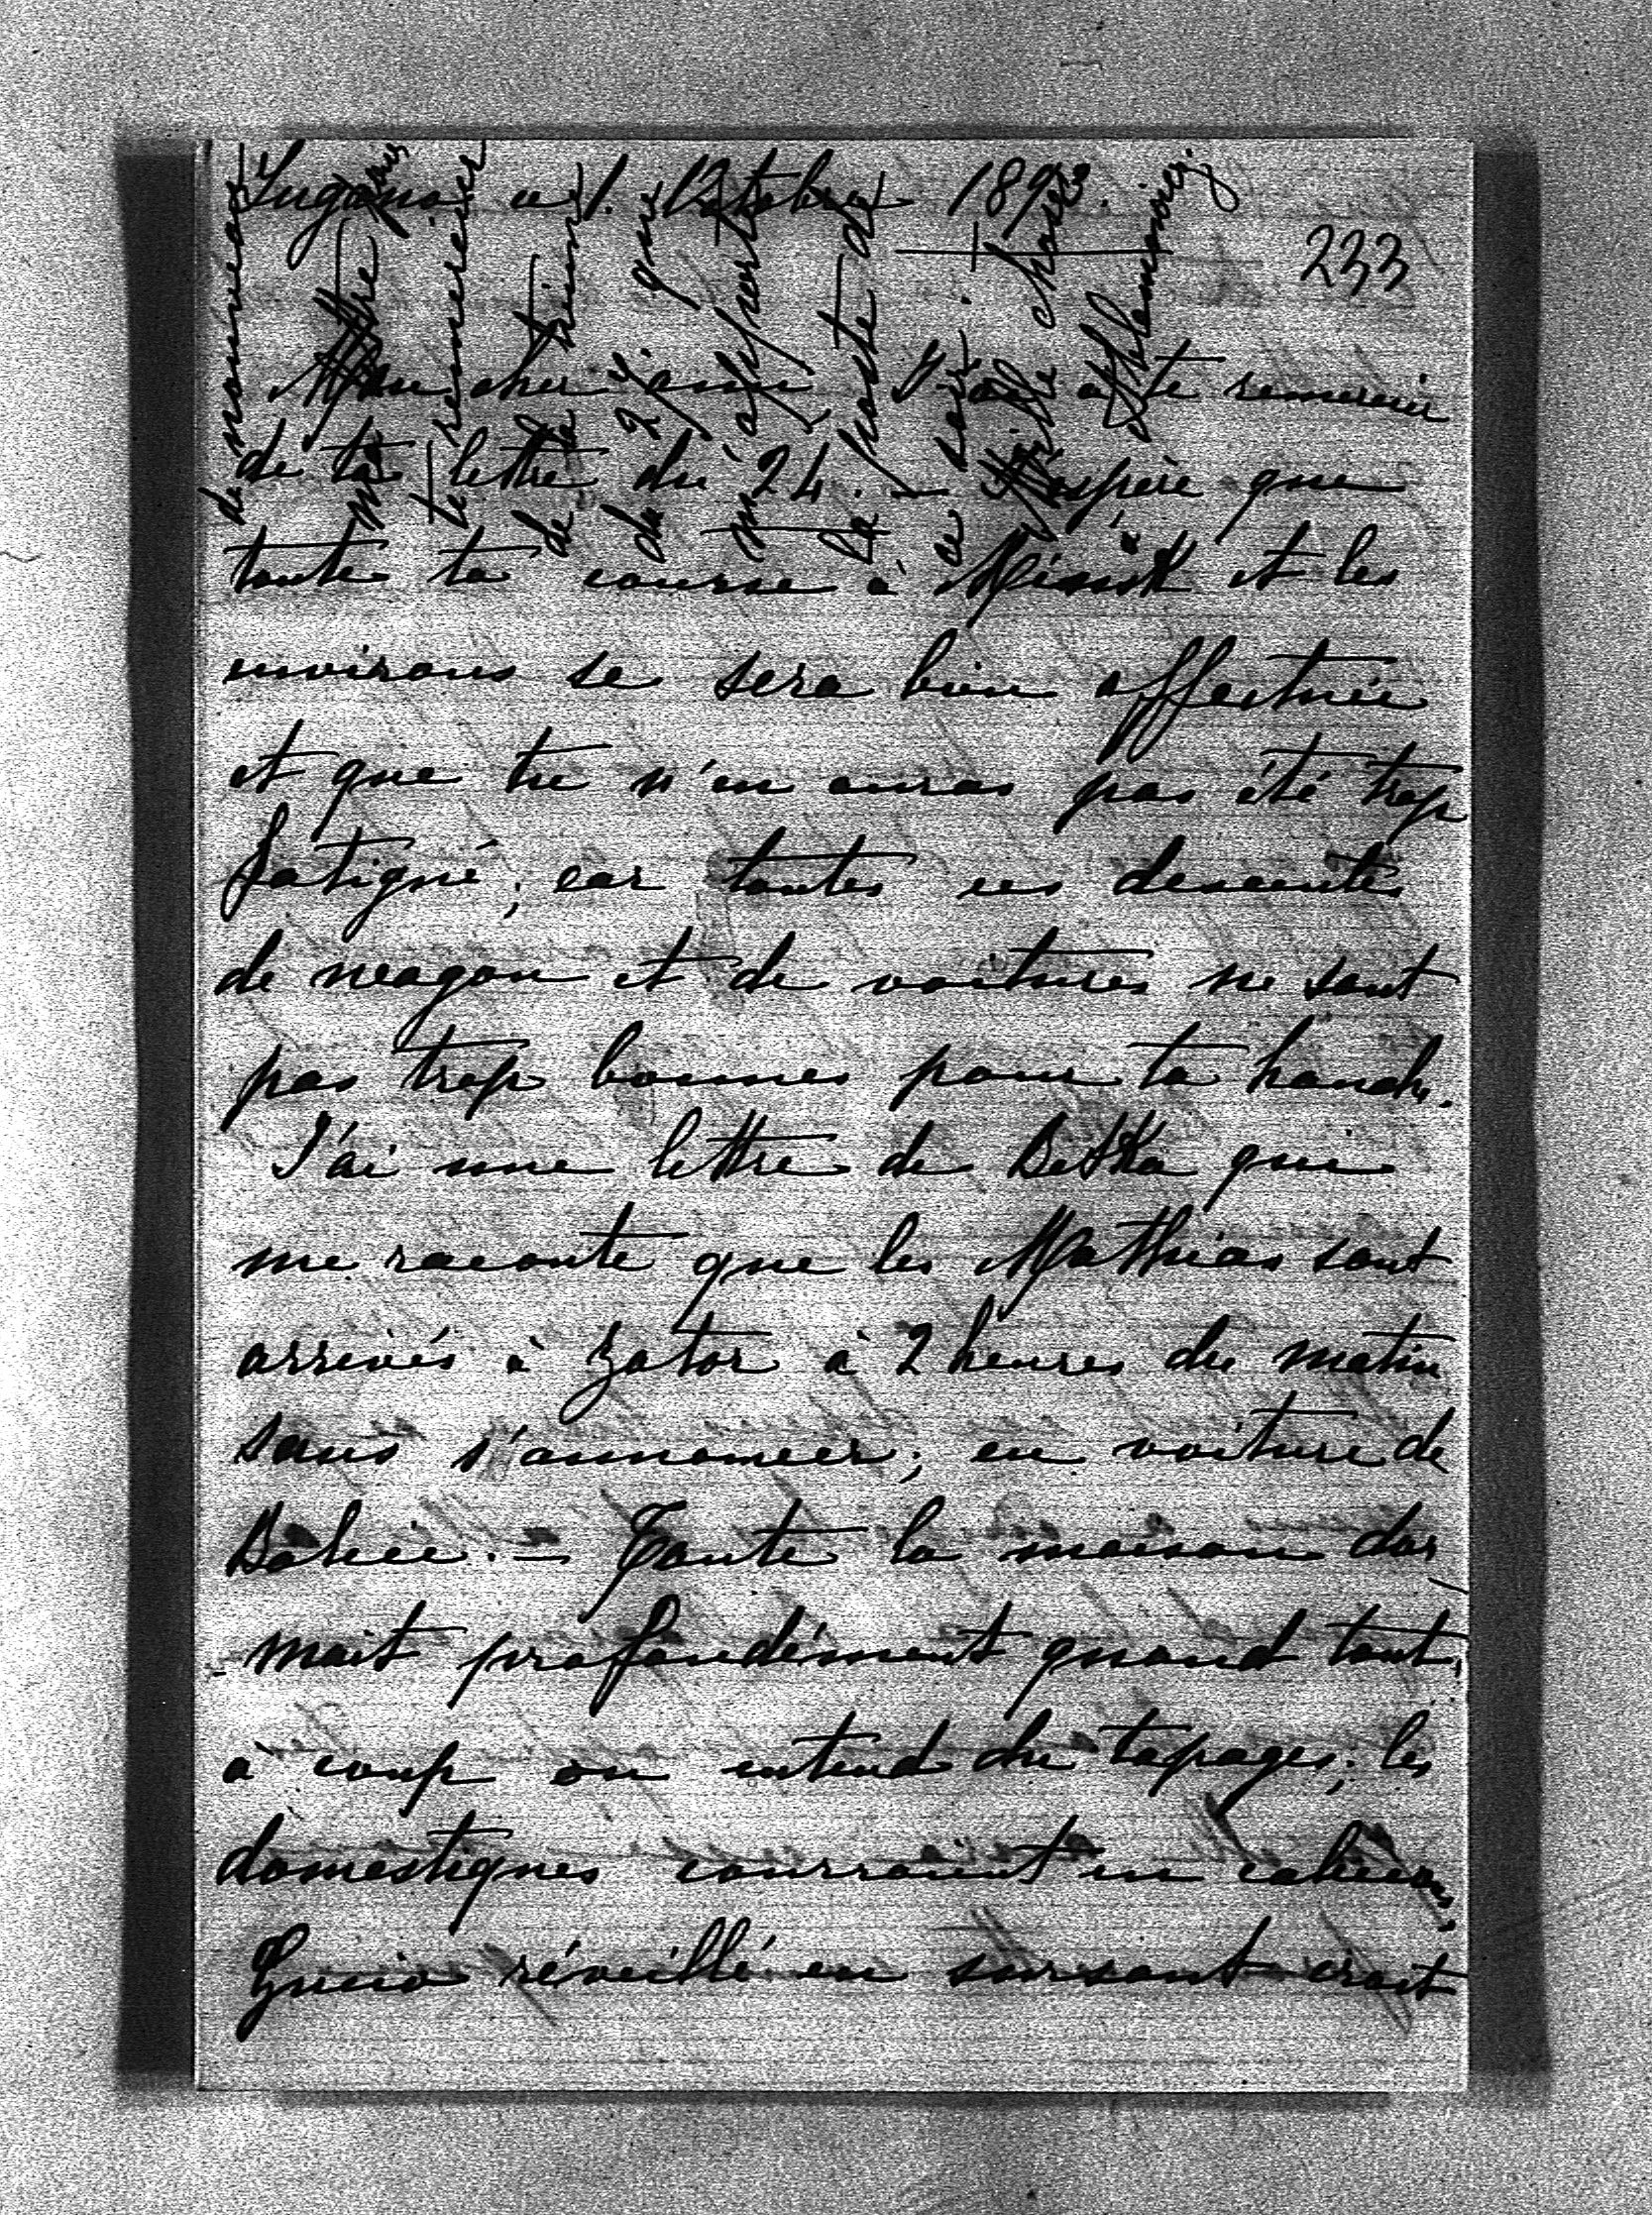 Lugano ce 1. Octobre 1893.
233
Mon cher ami J'ai à te remercier
de ta lettre du 24. — J'espère que
toute ta course à Minsk et les
environs se sera bien effectuée
et que tu n'en auras pas été trop
fatigué; car toutes ces descentes
de wagon et de voitures ne sont
pas trop bonnes pour ta hanche.
J'ai une lettre de Betka qui
me raconte que les Mathias sont
arrivés à Zator à 2 heures du matin
sans s'annoncer; en voiture de
Toute la maison dor
-mait profondément quand tout
à coup on entend du tapages; les
domestiques courraient en caleçons,
réveillé en sursaut croit
te remercier
de
de
m'apporte
la poste de
ce soir.
Mille choses